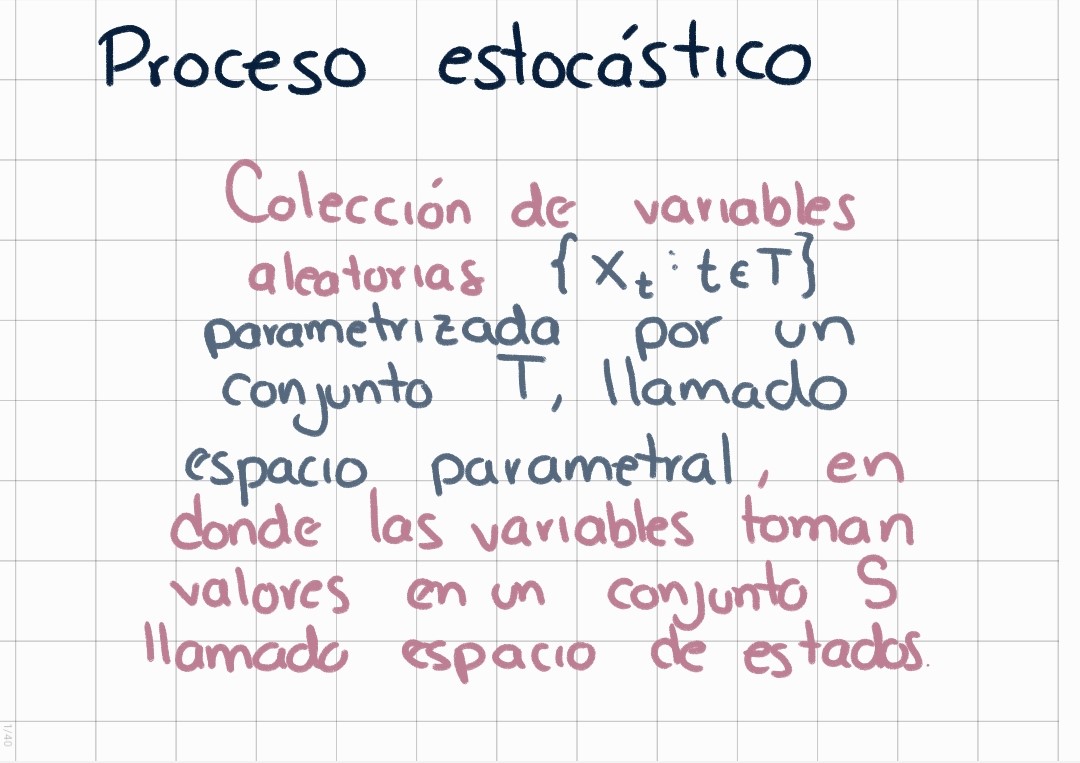 Proceso estocástico
Colección de variables
aleatorias {X_t : t ∈ T}
parametrizada por un
conjunto T, llamado
espacio parametral, en
donde las variables toman
valores en un conjunto S
llamado espacio de estados.
1/40